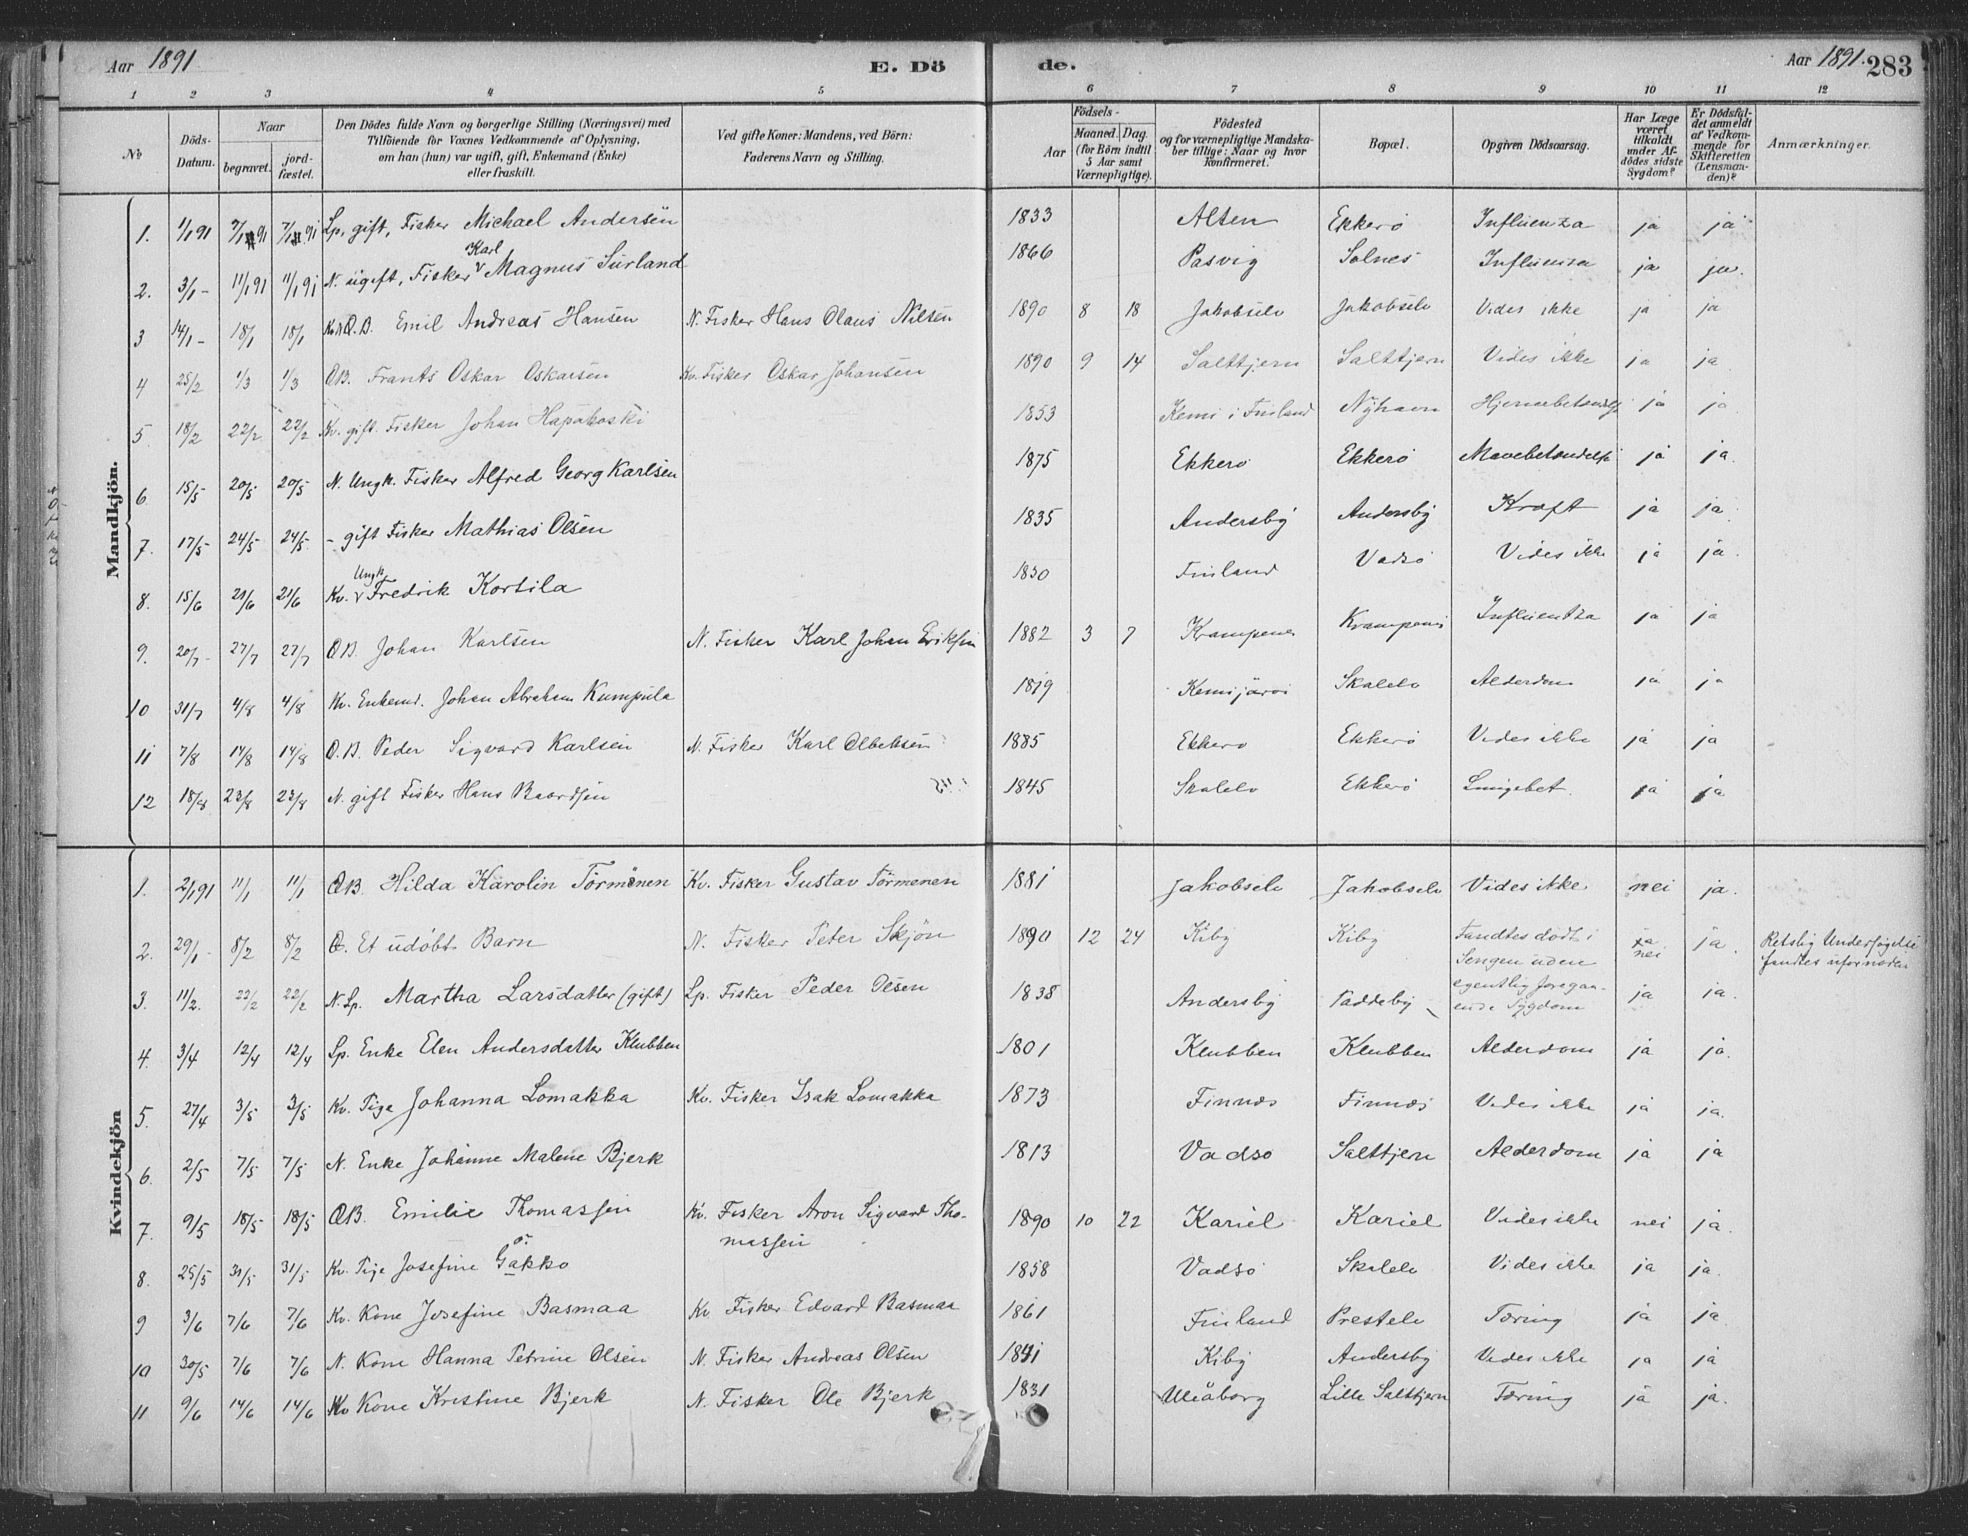 Aar 1891 E. Dö de. Aar 1891. 283
1 2 3 4 5 6 7 8 9 10 11 12
No Döds-Datum. Naar begravet. jord-fæstet. Den Dödes fulde Navn og borgerlige Stilling (Næringsvei) med Tilföiende for Voxnes Vedkommende af Oplysning, om han (hun) var ugift, gift, Enkemand (Enke) eller fraskilt. Ved gifte Koner: Mandens, ved Börn: Faderens Navn og Stilling. Födsels- Aar Maaned. Dag. (for Börn indtil 5 Aar samt Værnepligtige). Födested og for værnepligtige Mandskaber tillige: Naar og hvor konfirmeret. Bopæl. Opgiven Dödsaarsag. Har Læge været tilkaldt under Afdödes sidste Sygdom? Er Dödsfaldet anmeldt af Vedkommende for Skifteretten (Lensmanden)? Anmærkninger.
Mandkjön.
1. 1/1 91 7/1 91 7/1 91 Lp. gift, Fisker Michael Andersen 1833 Alten Ekkerø Influenza ja ja
Karl
2. 3/1 - 11/1 91 11/1 91 N. ugift, Fisker Magnus Surland 1866 Pasvig Solnes Influenza ja ja.
3 14/1 - 18/1 18/1 Emil Andreas Hansen N. Fisker Hans Olaus Nilsen 1890 8 18 Jakobselv Jakobselv Vides ikke ja ja
4 25/2 1/3 1/3 Frants Oskar Oskarsen Kv. Fisker Oskar Johansen 1890 9 14 Salttjern Salttjern Vides ikke ja ja
5 18/2 22/2 22/2 Kv. gift. Fisker Johan Hapakoski 1853 Kemi i Finland Nyhavn Hjernebetændelse ja ja
6 15/5 20/5 20/5 N. Ungk. Fisker Alfred Georg Karlsen 1875 Ekkerø Ekkerø Mavebetændelse ja ja.
7. 17/5 24/5 24/5. - gift Fisker Mathias Olsen 1835 Andersby Andersby Kræft ja ja
Ungk.
8. 15/6 21/6 21/6 Kv. Fredrik Kortila 1850 Finland Vadsø Vides ikke ja ja.
9. 20/7 - 27/7 27/7 Johan Karlsen N. Fisker Karl Johan Eriksen 1882 3 7 Krampenes Krampenes Influentza ja ja
10 31/7 4/8 4/8 Kv. Enkemd. Johan Abraham Kumpula 1819 Kemijärvi Skalelv Alderdom ja ja
11 7/8 14/8 14/8 Peder Sigvard Karlsen N. Fisker Karl 1885 Ekkerø Ekkerø Vides ikke ja ja
12 18/8 23/8 23/8 N. gift Fisker Hans Baardsen 1845 Skalelv Ekkerø ja ja
Kvindekjön
1. 2/1 91 11/1 11/1 Hilda Karolin Törmänen Kv. Fisker Gustav Törmenen 1881 Jakobselv Jakobselv Vides ikke nei ja.
2. 29/1 - 8/2 8/2 Et udöbt Barn N. Fisker Peter Skjön 1890 12 24 Kiby Kiby Fandtes dödt i Sengen uden egentlig foregaaende Sygdom nei ja. Retslig Undersøgelse fandtes ufornøden
3. 11/2. 22/2 22/2 N. Lp. Martha Larsdatter (gift) Lp. Fisker Peder Olsen 1838 Andersby Paddeby ja ja.
4. 3/4 12/4 12/4 Lp. Enke Elen Andersdatter Klubben 1801 Klubben Klubben Alderdom ja ja.
5. 27/4 3/5 3/5 Kv. Pige Johanna Lomakka Kv. Fisker Isak Lomakka 1873 Finnæs Finnæs Vides ikke ja ja.
6. 2/5 7/5 7/5 N. Enke Johanne Malene Bjerk 1813 Vadsø Salttjern Alderdom ja ja
7. 9/5 18/5 18/5 Emilie Thomassen Kv. Fisker Aron Sigvard Thomassen 1890 10 22 Kariel Kariel Vides ikke nei ja.
8. 25/5 31/5 31/5 Kv. Pige Josefine Gakko 1858 Vadsø Skalelv Vides ikke ja ja.
9 3/6 7/6 7/6 Kv. Kone Josefine Basmaa Kv. Fisker Edvard Basmaa 1861 Finland Prestelv Tæring ja ja.
10 30/5 7/6 7/6 N. Kone Hanna Petrine Olsen N. Fisker Andreas Olsen 1841 Kiby Andersby Vides ikke ja ja
11 9/6 14/6 14/6 Kv Kone Kristine Bjerk N. Fisker Ole Bjerk 1831 Uleåborg Lille Salttjern Tæring ja ja.